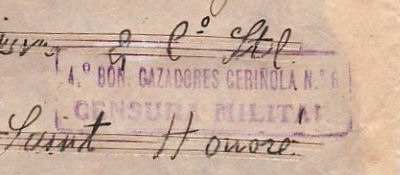 & C.º Ltd.
4.º BON. CAZADORES CERIÑOLA N.º 6
CENSURA MILITAR
Saint Honoré